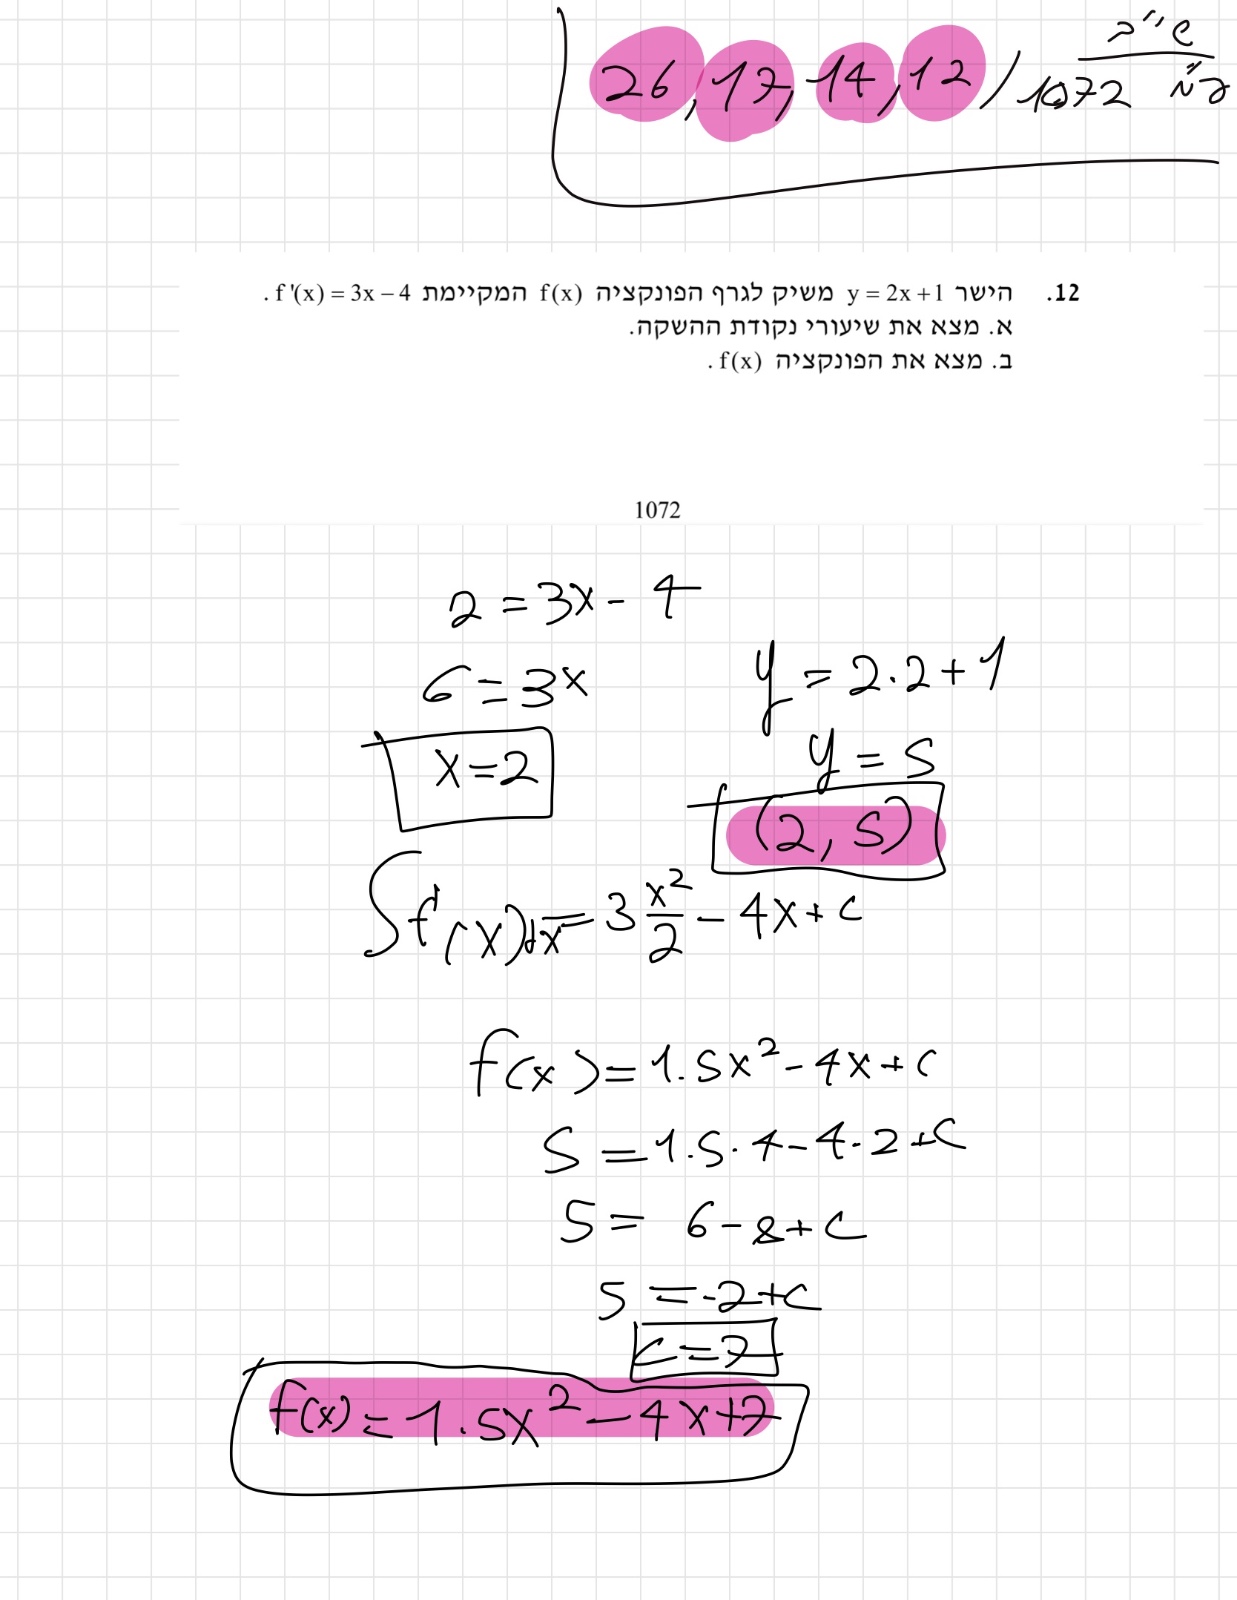 ש"ב
26, 17, 14, 12 / 1072
12. הישר y = 2x + 1 משיק לגרף הפונקציה f(x) המקיימת f '(x) = 3x – 4 .
א. מצא את שיעורי נקודת ההשקה.
ב. מצא את הפונקציה f(x) .
1072
2 = 3x - 4
6 = 3x
x = 2
y = 2·2+1
y = 5
(2, 5)
∫f'(x)dx = 3 x²/2 - 4x + c
f(x) = 1.5x² - 4x + c
5 = 1.5·4 - 4·2 + c
5 = 6 - 8 + c
5 = -2 + c
c = 7
f(x) = 1.5x² - 4x + 7